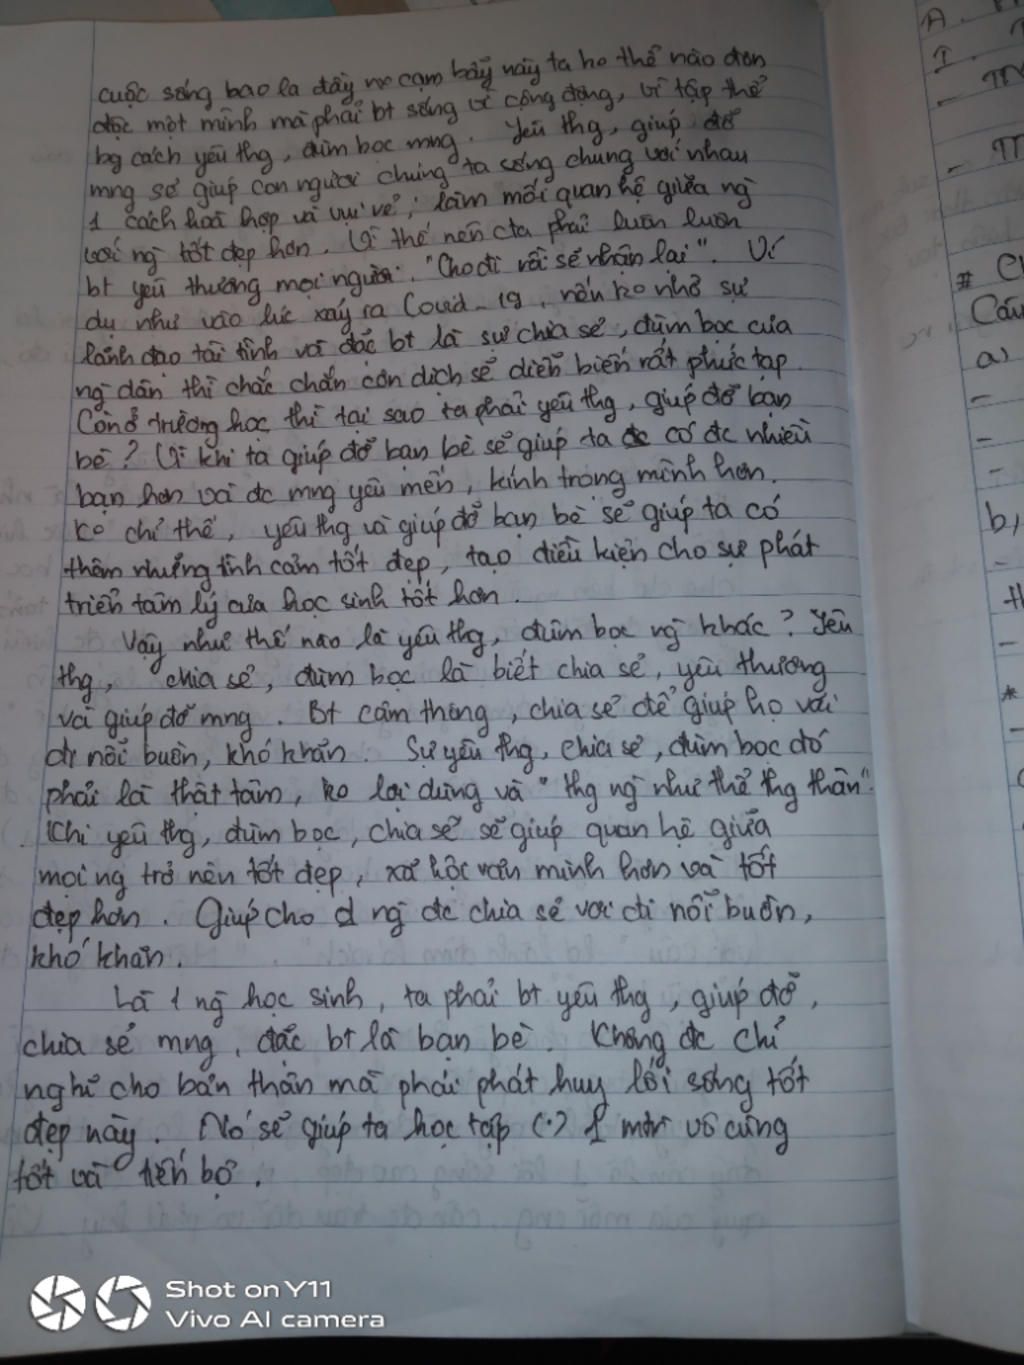 cuộc sống bao la đầy nơ cạm bẫy này ta ko thể nào đơn
độc một mình mà phải bt sống vì cộng đồng, vì tập thể
bg cách yêu thg, đùm bọc mng. Yêu thg, giúp đỡ
mng sẽ giúp con người chúng ta sống chung với nhau
1 cách hoà hợp và vui vẻ, làm mối quan hệ giữa ng
với ng tốt đẹp hơn. Vì thế nên cta phải luôn luôn
bt yêu thương mọi người. "Cho đi rồi sẽ nhận lại". Ví
dụ như vào lúc xảy ra Covid-19, nếu ko nhờ sự
lãnh đạo tài tình và đặc bt là sự chia sẻ, đùm bọc của
ng dân thì chắc chắn cơn dịch sẽ diễn biến rất phức tạp.
Còn ở trường học thì tại sao ta phải yêu thg, giúp đỡ bạn
bè? Vì khi ta giúp đỡ bạn bè sẽ giúp ta có đc nhiều
bạn hơn và đc mng yêu mến, kính trọng mình hơn.
Ko chỉ thế, yêu thg và giúp đỡ bạn bè sẽ giúp ta có
thêm những tình cảm tốt đẹp, tạo điều kiện cho sự phát
triển tâm lý của học sinh tốt hơn.
Vậy như thế nào là yêu thg, đùm bọc ng khác? Yêu
thg, chia sẻ, đùm bọc là biết chia sẻ, yêu thương
và giúp đỡ mng. Bt cảm thông, chia sẻ để giúp họ vơi
đi nỗi buồn, khó khăn. Sự yêu thg, chia sẻ, đùm bọc đó
phải là thật tâm, ko lợi dụng và "thg ng như thể thg thân".
Khi yêu thg, đùm bọc, chia sẻ sẽ giúp quan hệ giữa
mọi ng trở nên tốt đẹp, xã hội văn minh hơn và tốt
đẹp hơn. Giúp cho ng đc chia sẻ vơi đi nỗi buồn,
khó khăn.
Là 1 ng học sinh, ta phải bt yêu thg, giúp đỡ,
chia sẻ mng, đặc bt là bạn bè. Không đc chỉ
nghĩ cho bản thân mà phải phát huy lối sống tốt
đẹp này. Nó sẽ giúp ta học tập (.) 1 mtr vô cùng
tốt và tiến bộ.
A.
I.
#
Câu
a)
b,
*
Shot on Y11
Vivo AI camera